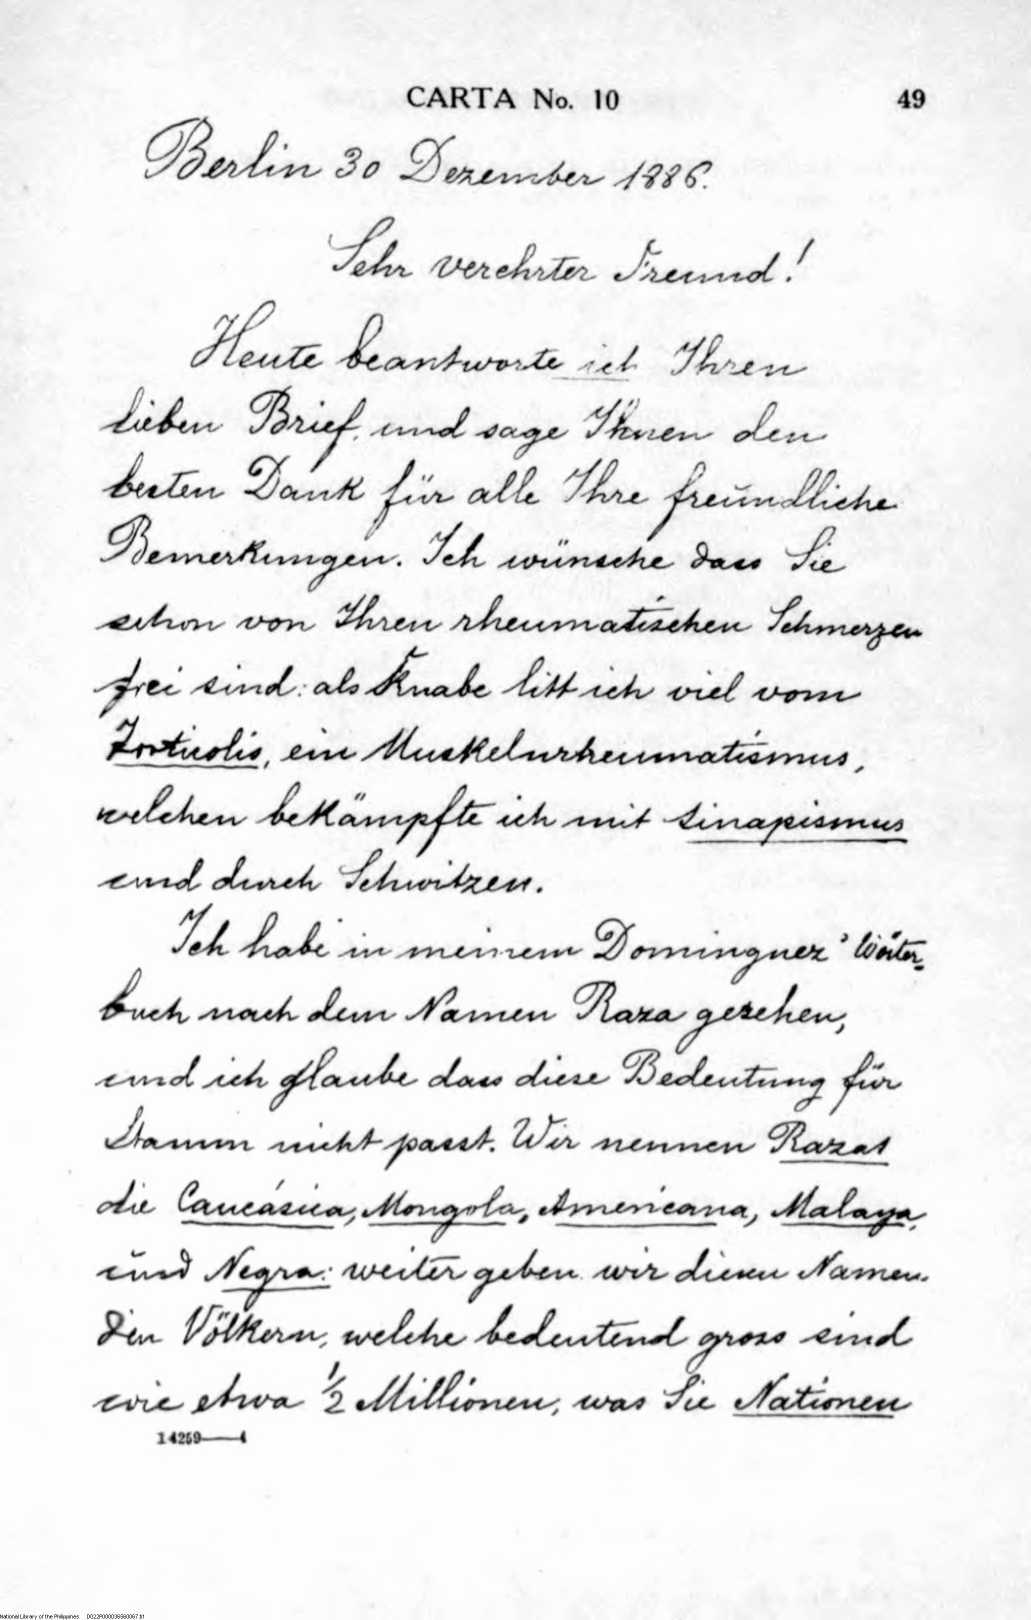 CARTA No. 10 49
Berlin 30 Dezember 1886.
Sehr verehrter Freund!
Heute beantworte ich Ihren
lieben Brief, und sage Ihnen den
besten Dank für alle Ihre freundliche
Bemerkungen. Ich wünsche dass Sie
schon von Ihren rheumatischen Schmerzen
frei sind: als Knabe litt ich viel vom
Torticolis, ein Muskelnrheumatismus,
welchen bekämpfte ich mit sinapismus
und durch Schwitzen.
Ich habe in meinem Dominguez' Wörter-
buch nach dem Namen Raza gesehen,
und ich glaube dass diese Bedeutung für
Stamm nicht passt. Wir nennen Razas
die Caucásica, Mongola, Américana, Malaya,
und Negra: weiter geben wir diesen Namen
den Völkern, welche bedeutend gross sind
wie etwa ½ Millionen, was Sie Nationen
14259——4
National Library of the Philippines